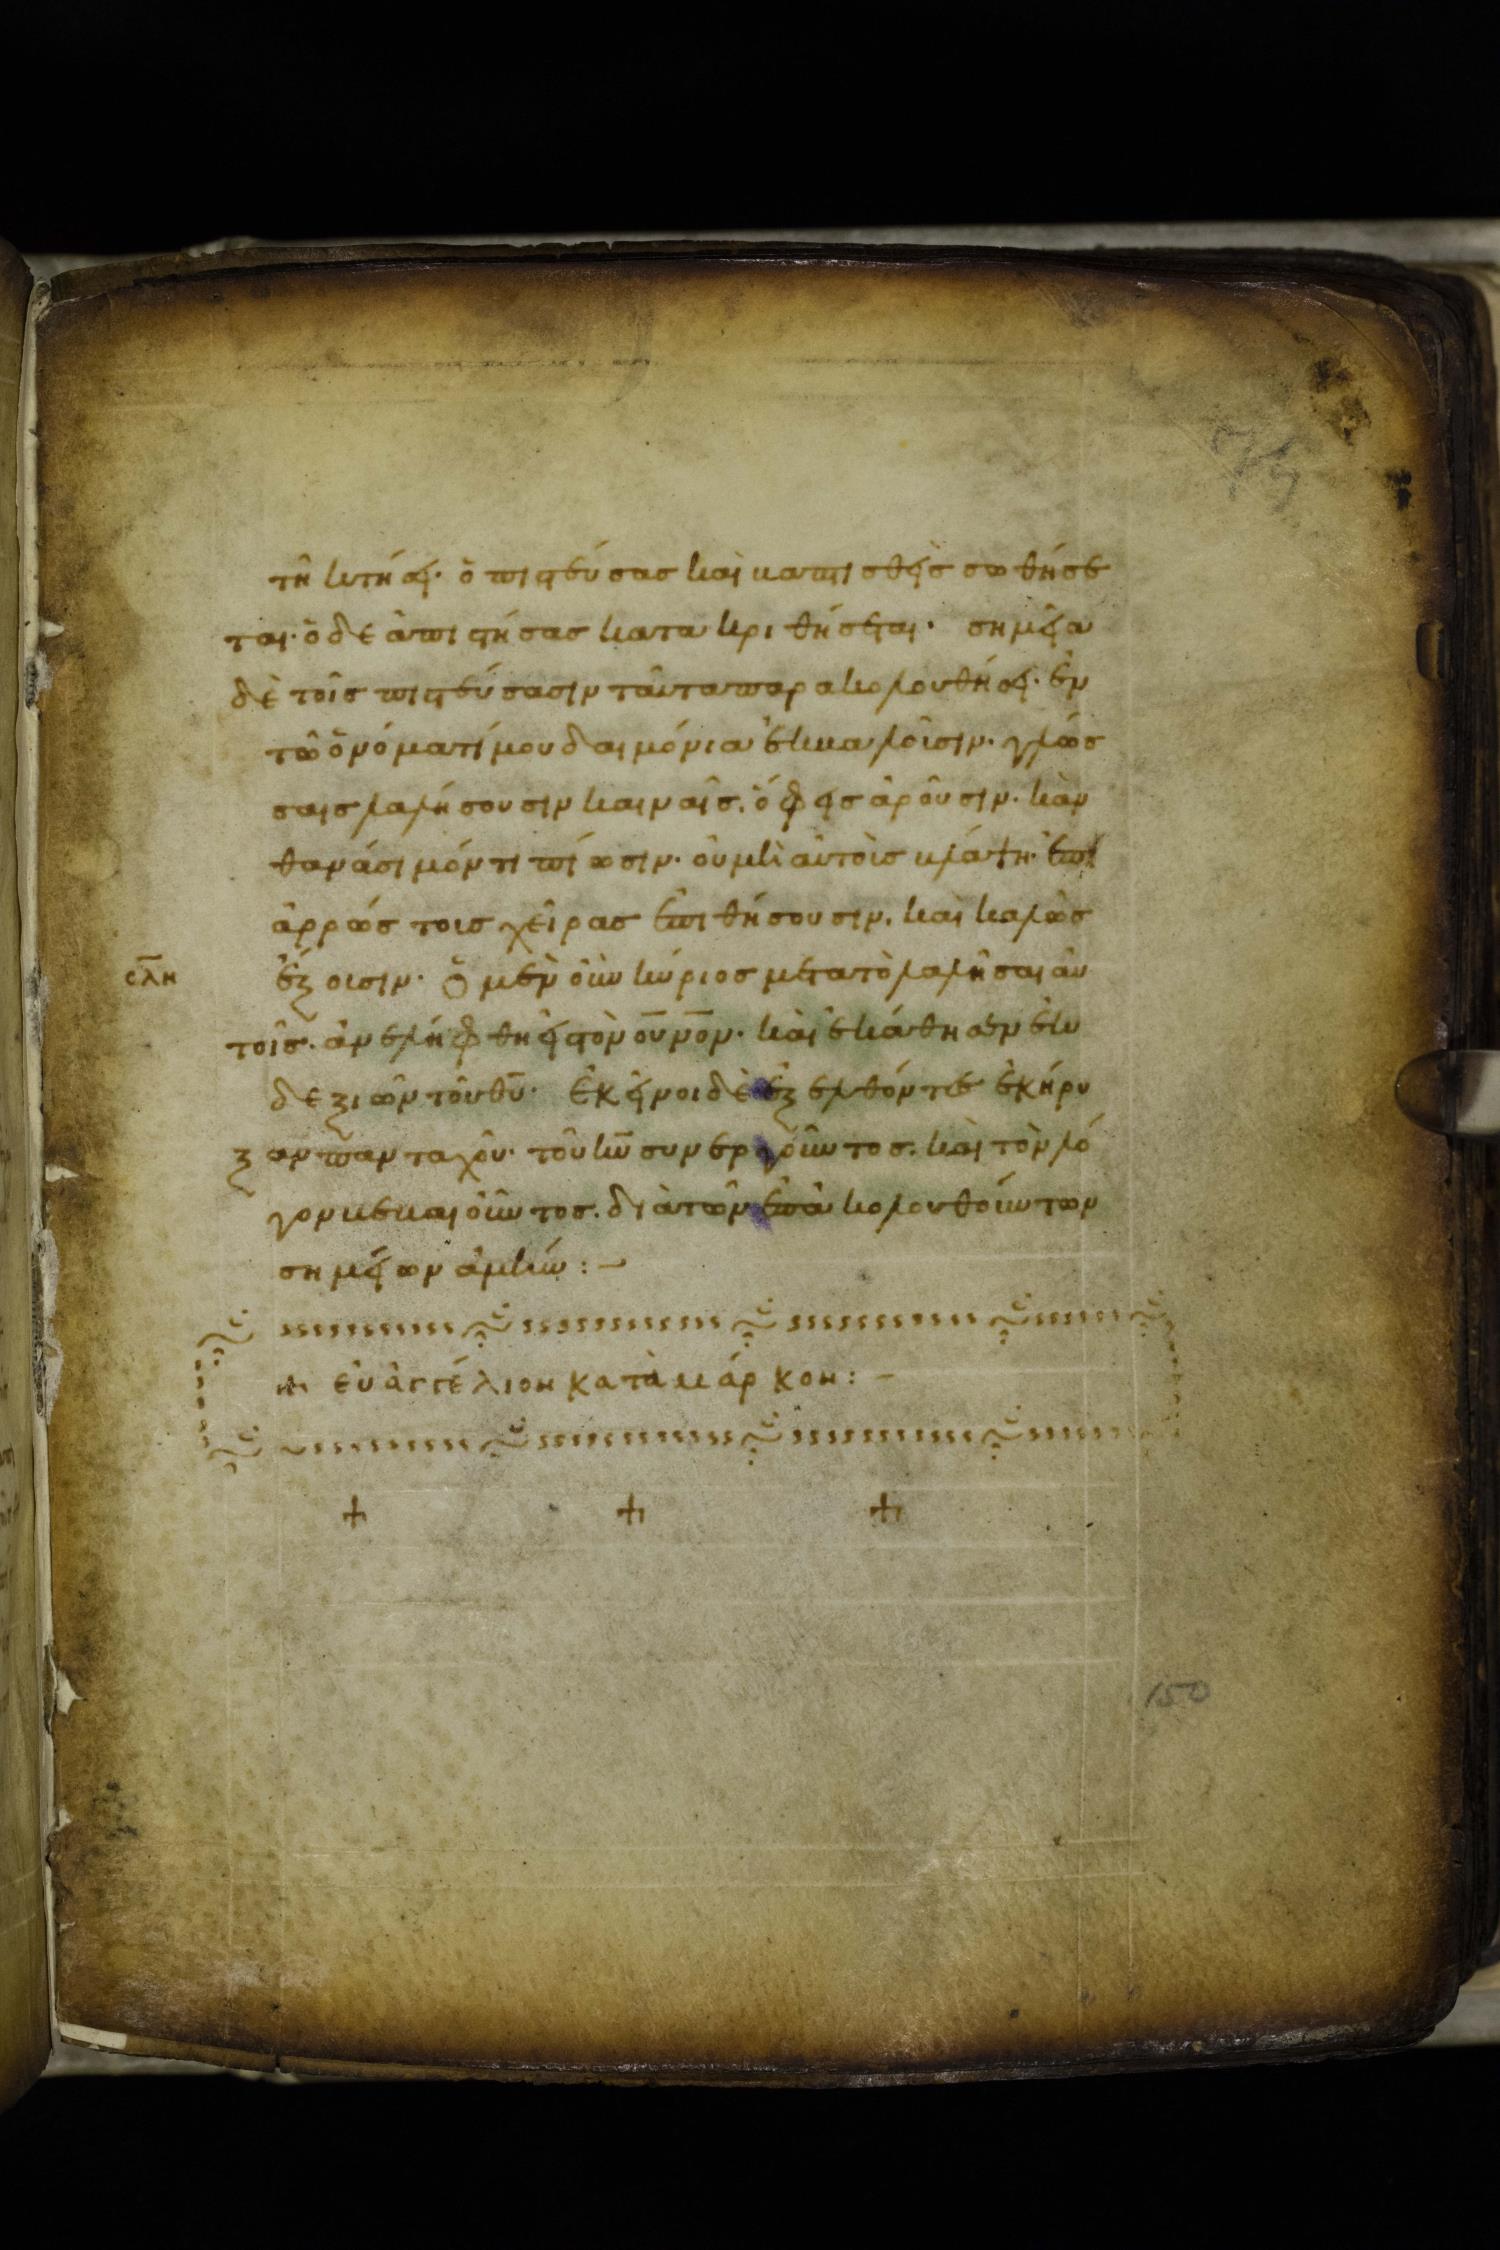 75
τῆ κτήσει· ὁ πιστεύσας καὶ βαπτισθεὶς σωθήσε
ται· ὁ δὲ ἀπιστήσας κατακριθήσεται· σημεῖα
δὲ τοῖς πιστεύσασιν ταῦτα παρακολουθήσει· ἐν
τῶ ὀνόματί μου δαιμόνια ἐκβαλοῦσιν· γλώσ
σαις λαλήσουσιν καιναῖς· ὄφεις ἀροῦσιν· κἂν
θανάσιμόν τι πίωσιν· οὐ μὴ αὐτοὺς βλάψη· ἐπὶ
ἀρρώστοις χεῖρας ἐπιθήσουσιν· καὶ καλῶς
ϲλη ἕξουσιν· Ὁ μὲν οὖν κύριος μετὰ τὸ λαλῆσαι αὐ
τοῖς· ἀνελήφθη εἰς τὸν ουνον· καὶ ἐκάθησεν ἐκ
δεξιῶν τοῦ θυ· Ἐκεῖνοι δὲ ἐξελθόντες ἐκήρυ
ξαν πανταχοῦ· τοῦ κυ συνεργοῦντος· καὶ τὸν λό
γον βεβαιοῦντος· διὰ τῶν ἐπακολουθούντων
σημείων ἀμήν :—
+ εὐαγγέλιον κατὰ μάρκον :—
+ + +
150